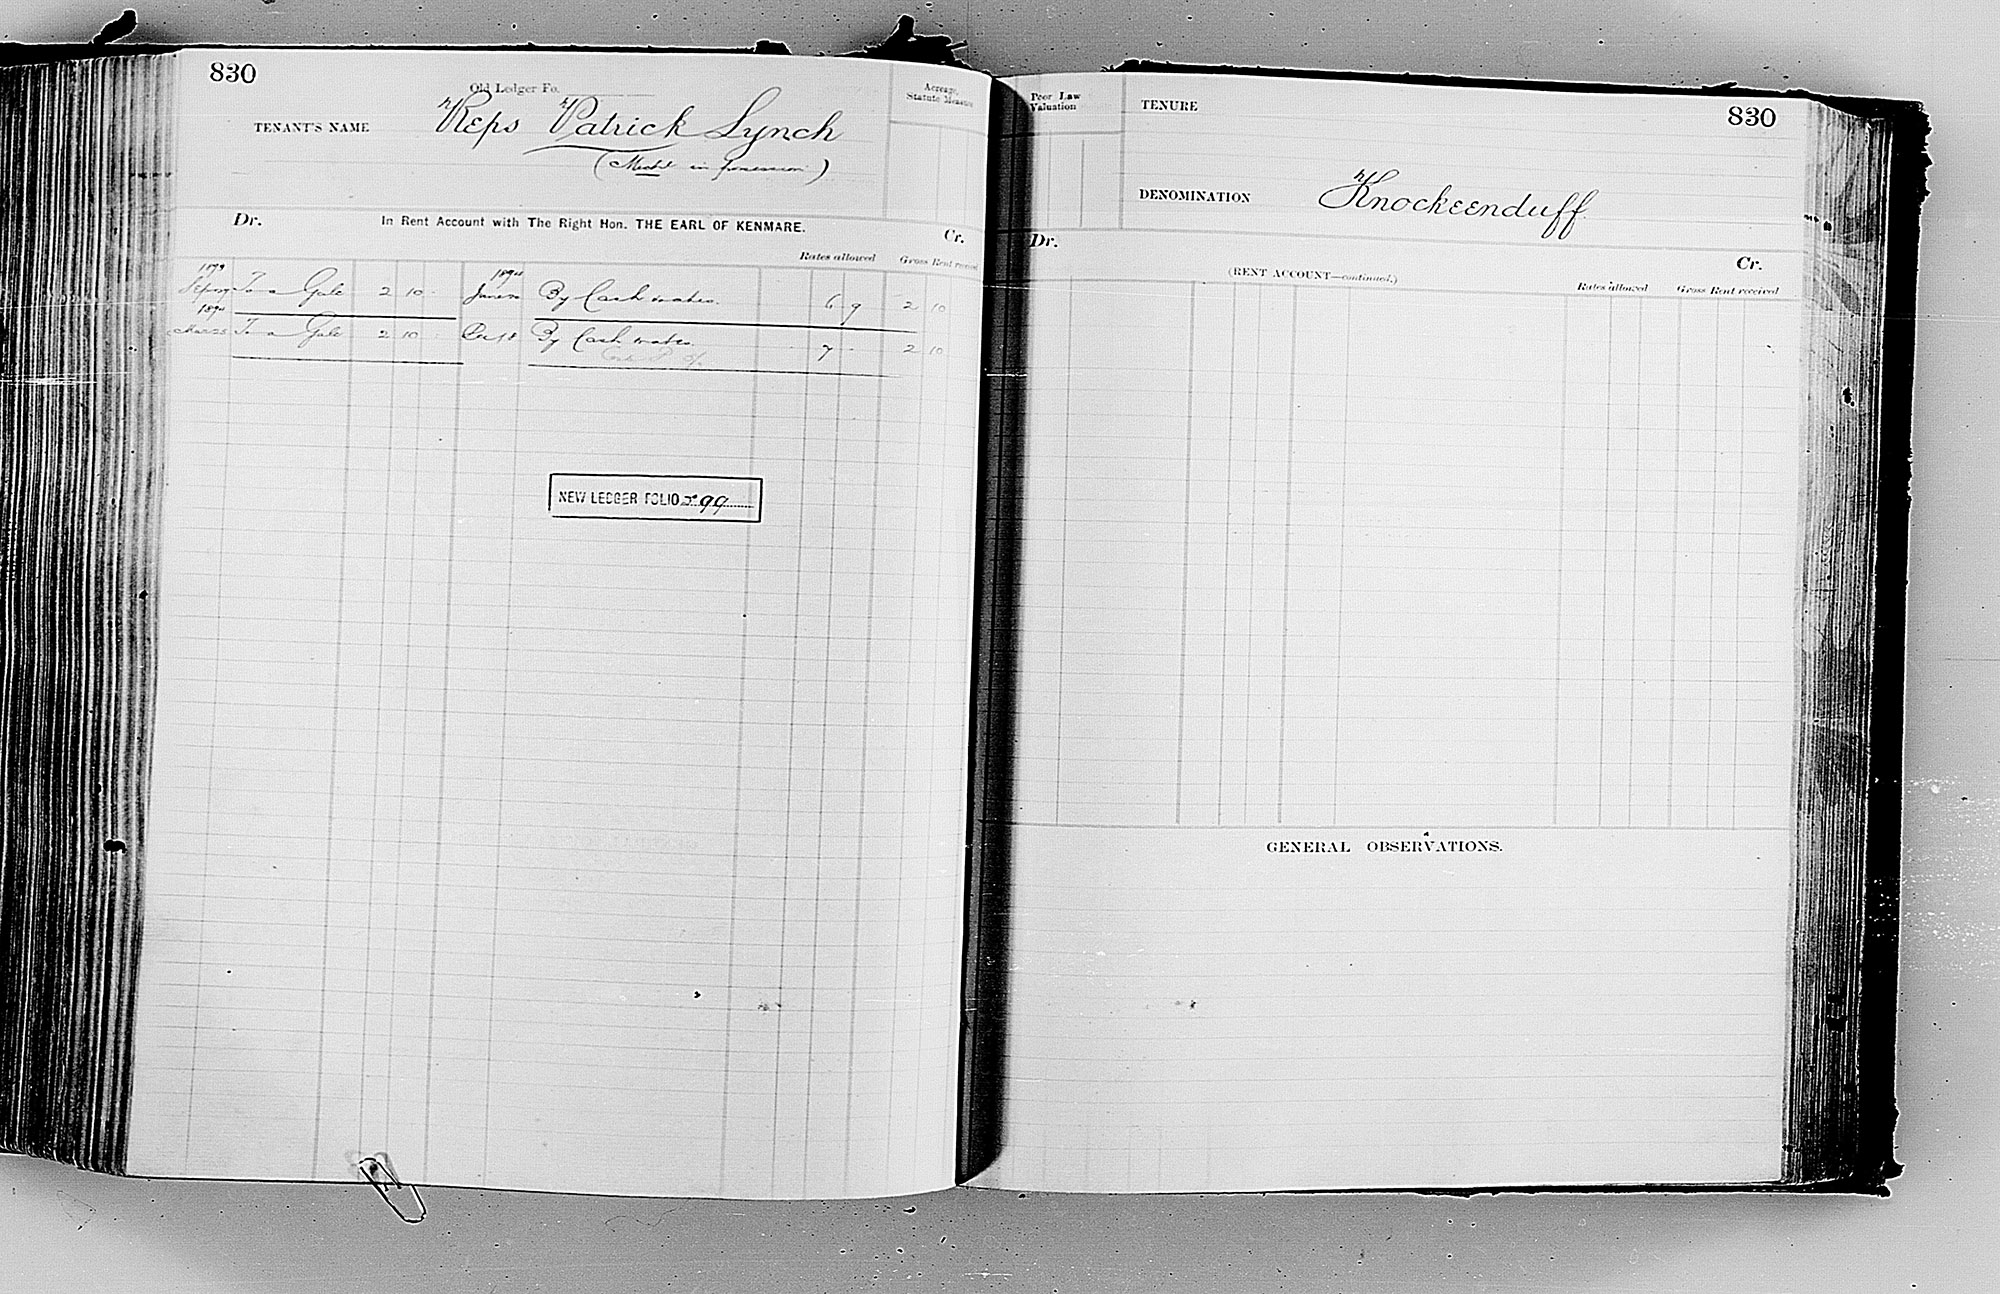 830
Old Ledger Fo.
TENANT'S NAME Reps Patrick Lynch
(Michl in possession)
Acreage, Statute Measure
Dr. In Rent Account with The Right Hon. THE EARL OF KENMARE. Cr.
Rates allowed Gross Rent received
To a Gale 2 10 By Cash & rates. 6 9 2 10
To a Gale 2 10 By Cash & rates. 7 2 10
NEW LEDGER FOLIO 99
Poor Law Valuation
TENURE
830
DENOMINATION Knockeenduff
Dr. Cr.
(RENT ACCOUNT—continued.)
Rates allowed Gross Rent received
GENERAL OBSERVATIONS.